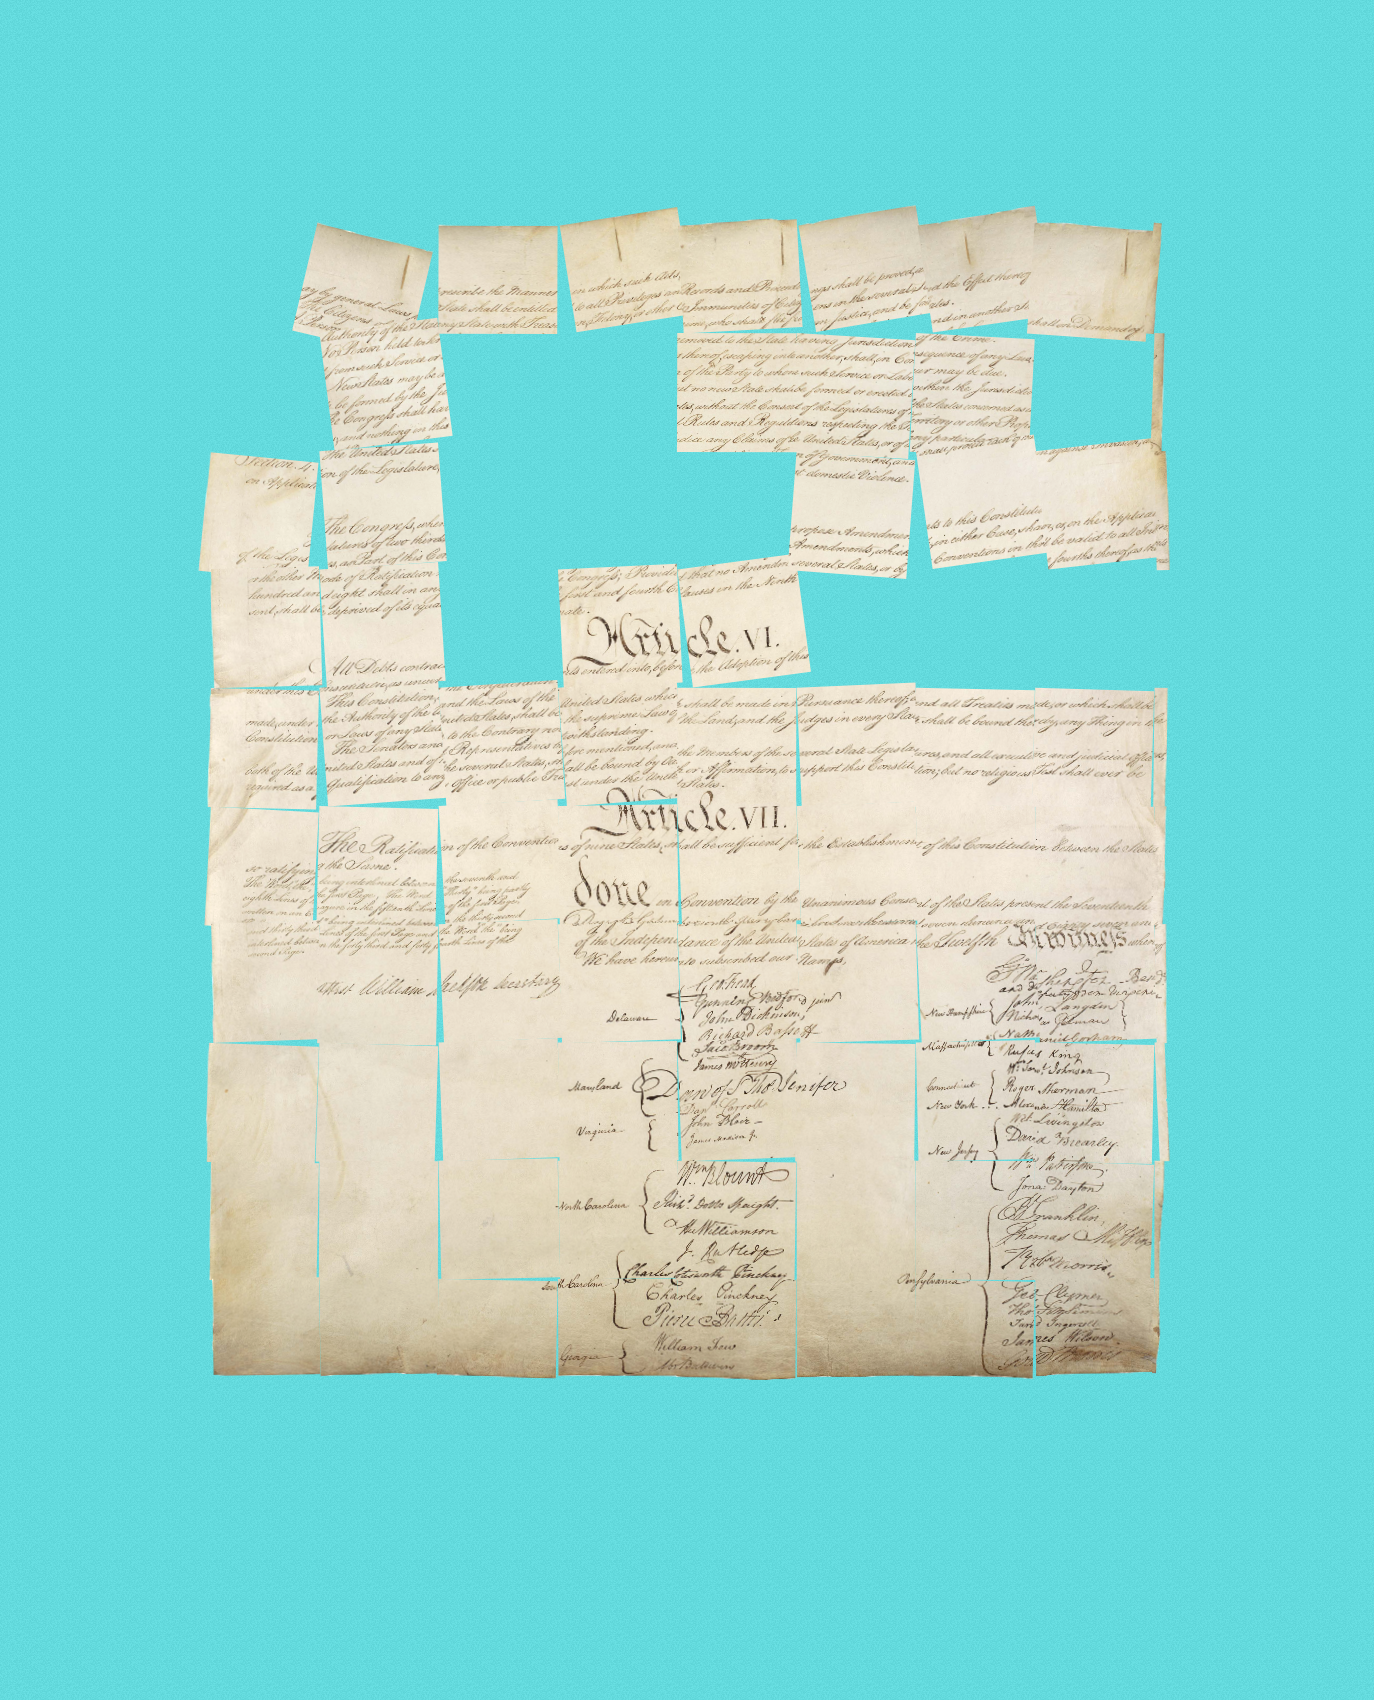 in which such Acts,
ay by general Laws, prescribe the Manner
ings shall be proved, and the Effect thereof
The Citizens State shall be entitled to all Privileges and Immunities of Citizens in the several States.
Person any State with Treason, Felony, or other who shall flee from Justice, and be found in another State
shall on Demand of
Authority of the State
removed to the State having Jurisdiction of the Crime.
No Person held to
thereof, escaping into another, shall, in Consequence of any Law
from such Service or
of the Party to whom such Service or Labour may be due.
New States may be
but no new State shall be formed or erected within the Jurisdiction
be formed by the Junction
States, without the Consent of the Legislatures of the States concerned as
The Congress shall have
Rules and Regulations respecting the Territory or other Property
and nothing in this
Prejudice any Claims of the United States, or of any particular State.
Section. 4. The United States
of Government, and shall protect each of them against Invasion; and
on Application of the Legislature,
domestic Violence.
The Congress, whenever
propose Amendments to this Constitution
of the Legislatures of two thirds
Amendments, which, in either Case, shall be valid to all Intents
as Part of this Constitution
several States, or by Conventions in three fourths thereof, as the
or the other Mode of Ratification
Congress; Provided that no Amendment
hundred and eight shall in any
first and fourth Clauses in the Ninth
sent, shall be deprived of its equal
Senate.
Article. VI.
All Debts contracted
Engagements entered into, before the Adoption of this
under this Constitution, as under the Confederation
This Constitution, and the Laws of the United States which shall be made in Pursuance thereof; and all Treaties made, or which shall be
made, under the Authority of the United States, shall be the supreme Law of the Land; and the Judges in every State shall be bound thereby, any Thing in the
Constitution or Laws of any State to the Contrary notwithstanding.
The Senators and Representatives before mentioned, and the Members of the several State Legislatures, and all executive and judicial Officers,
both of the United States and of the several States, shall be bound by Oath or Affirmation, to support this Constitution; but no religious Test shall ever be
required as a Qualification to any Office or public Trust under the United States.
Article. VII.
The Ratification of the Conventions of nine States, shall be sufficient for the Establishment of this Constitution between the States
so ratifying the Same.
The Word, "the," being interlined between the seventh and
eighth Lines of the first Page, The Word "Thirty" being partly
written on an Erazure in the fifteenth Line of the first Page,
being interlined between the thirty second
and thirty third Lines of the first Page and the Word "the" being
interlined between the forty third and forty fourth Lines of the
second Page.
done in Convention by the Unanimous Consent of the States present the Seventeenth
Day of September in the Year of our Lord one thousand seven hundred and Eighty seven and
of the Independance of the United States of America the Twelfth In Witness whereof
We have hereunto subscribed our Names,
Attest William Jackson Secretary
Go: Washington Presidt.
and deputy from Virginia
Delaware
Geo: Read
Gunning Bedford jun
John Dickinson
Richard Bassett
Jaco: Broom
Maryland
James McHenry
Dan of St Thos. Jenifer
Danl Carroll
Virginia
John Blair —
James Madison Jr.
North Carolina
Wm. Blount
Richd. Dobbs Spaight.
Hu Williamson
South Carolina
J. Rutledge
Charles Cotesworth Pinckney
Charles Pinckney
Pierce Butler.
Georgia
William Few
Abr Baldwin
New Hampshire
John Langdon
Nicholas Gilman
Massachusetts
Nathaniel Gorham
Rufus King
Connecticut
Wm. Saml. Johnson
Roger Sherman
New York . . . Alexander Hamilton
New Jersey
Wil: Livingston
David Brearley.
Wm. Paterson.
Jona: Dayton
Pensylvania
B Franklin
Thomas Mifflin
Robt Morris
Geo. Clymer
Thos. FitzSimons
Jared Ingersoll
James Wilson.
Gouv Morris